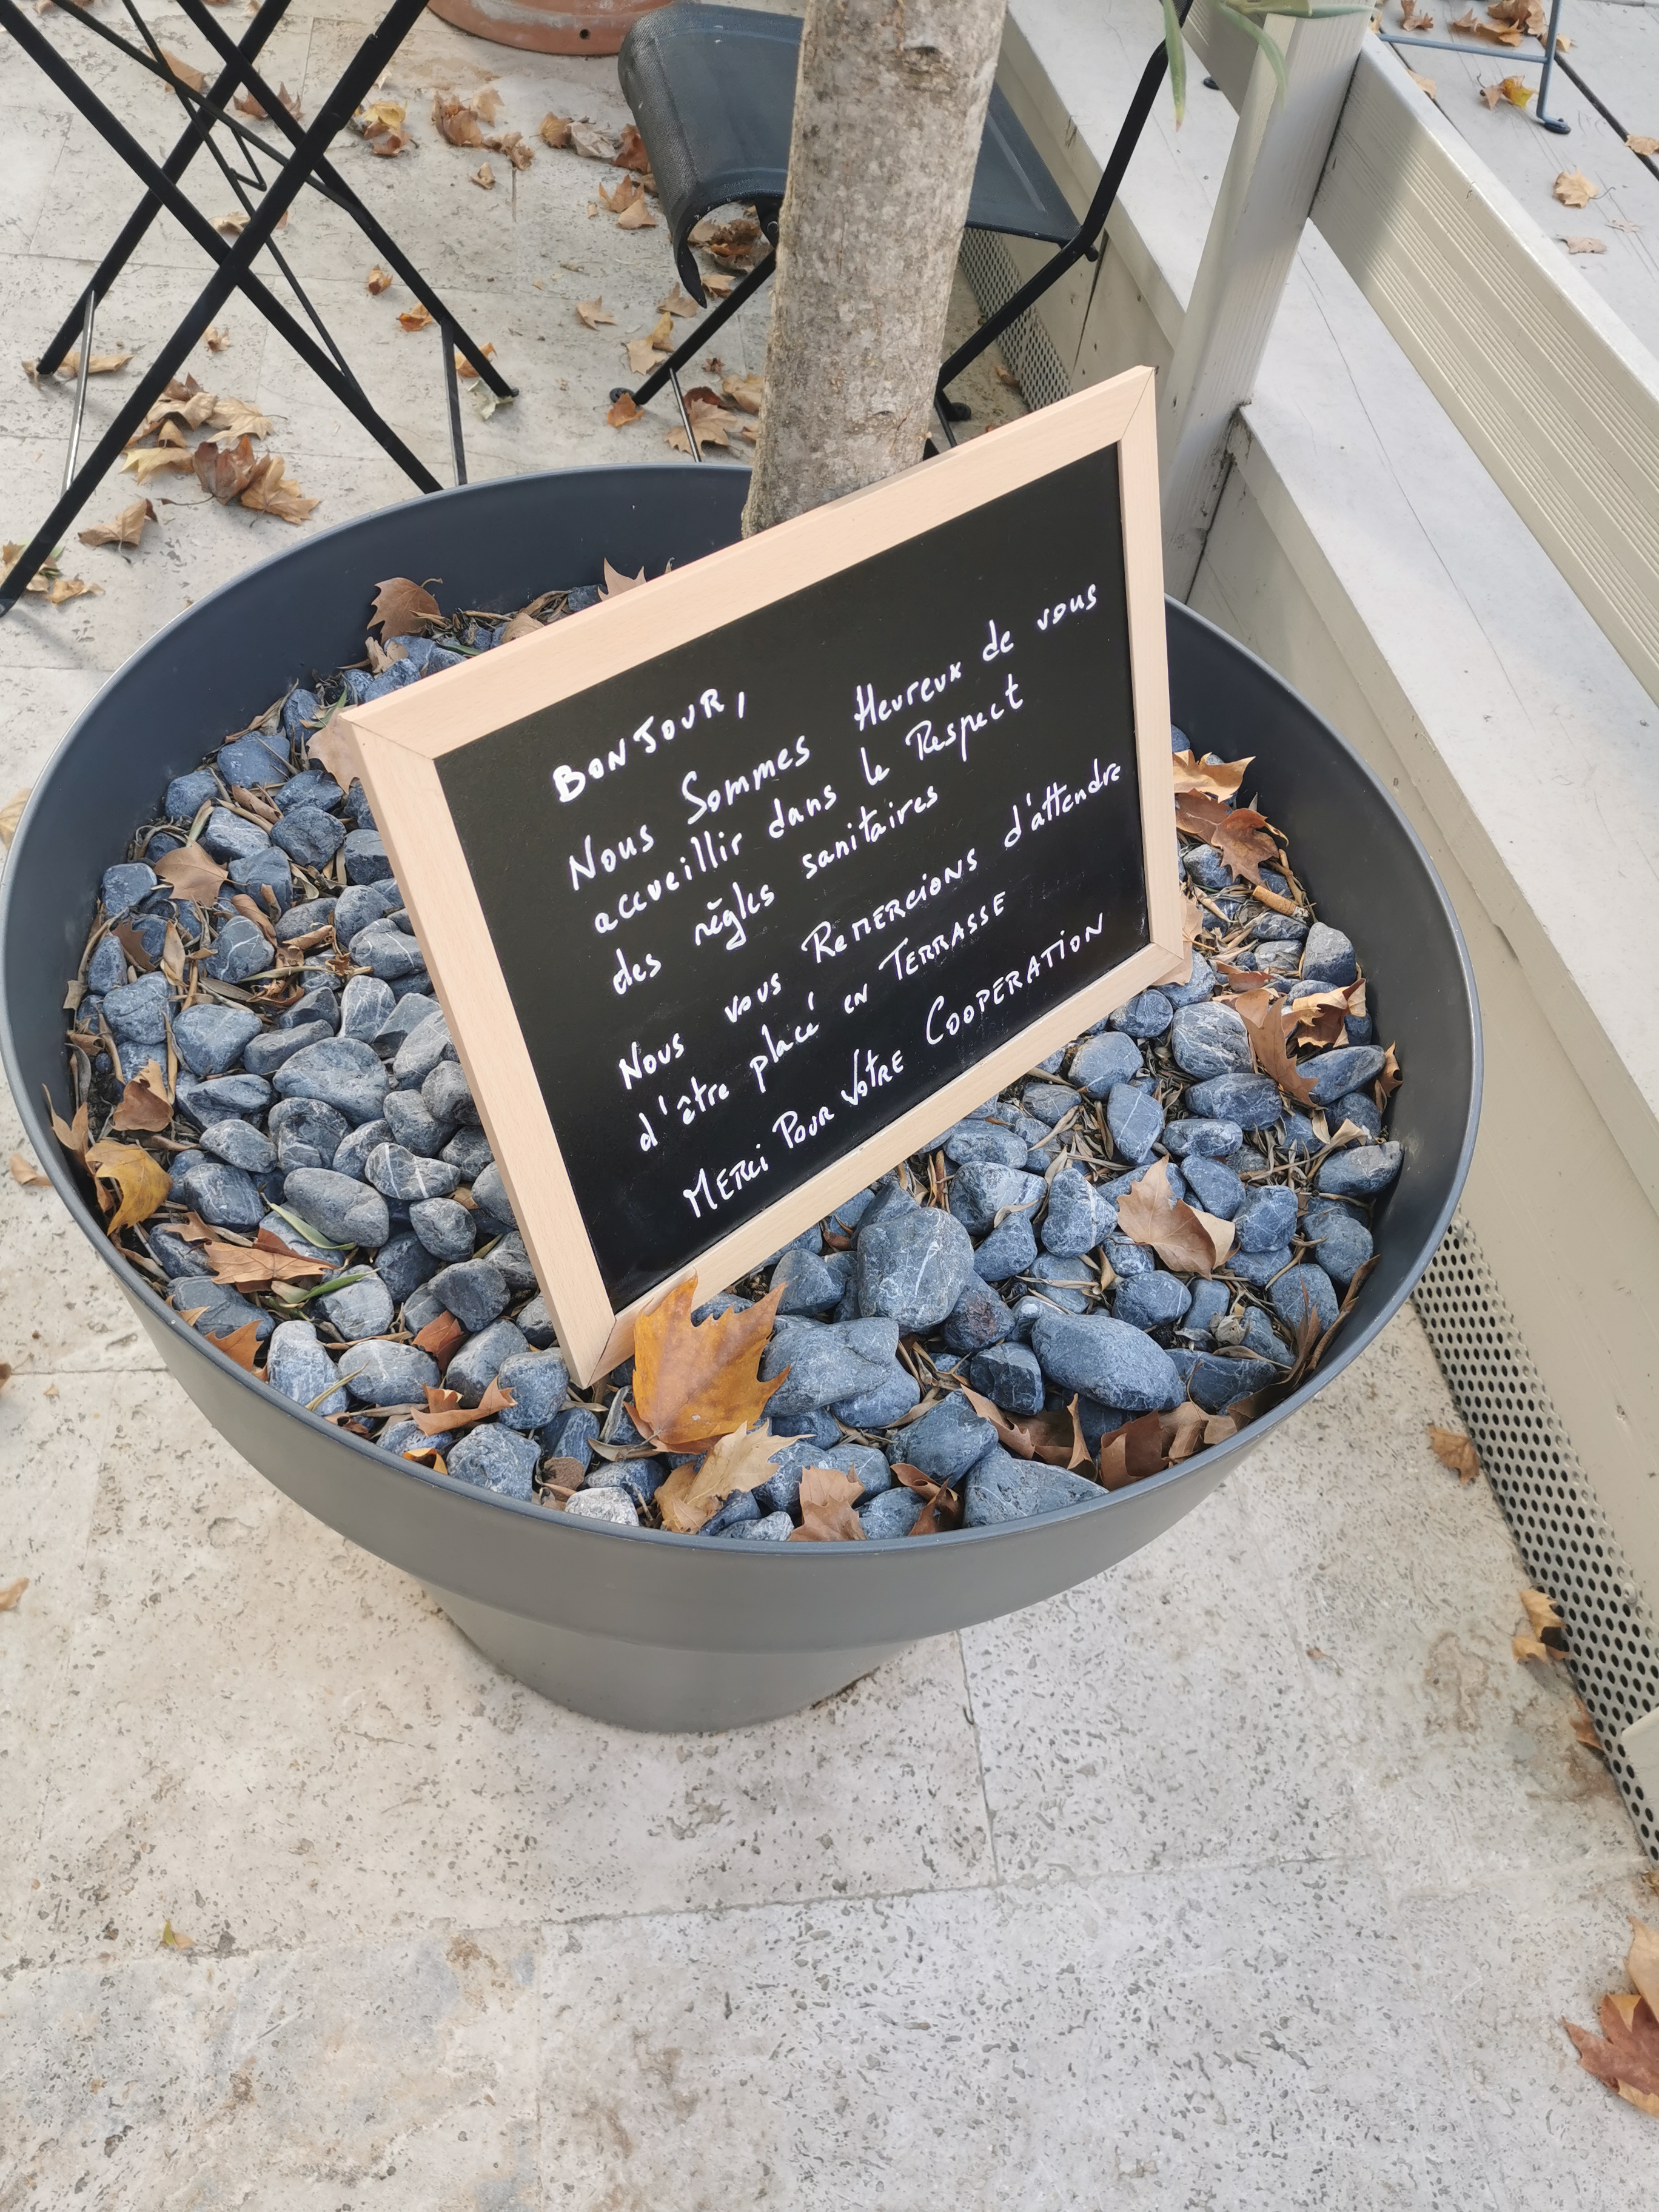 BONJOUR,
Nous Sommes Heureux de vous
accueillir dans le Respect
des règles sanitaires
Nous vous REMERCIONS d'attendre
d'être placé en TERRASSE
MERCi POUR VOTRE COOPERATION